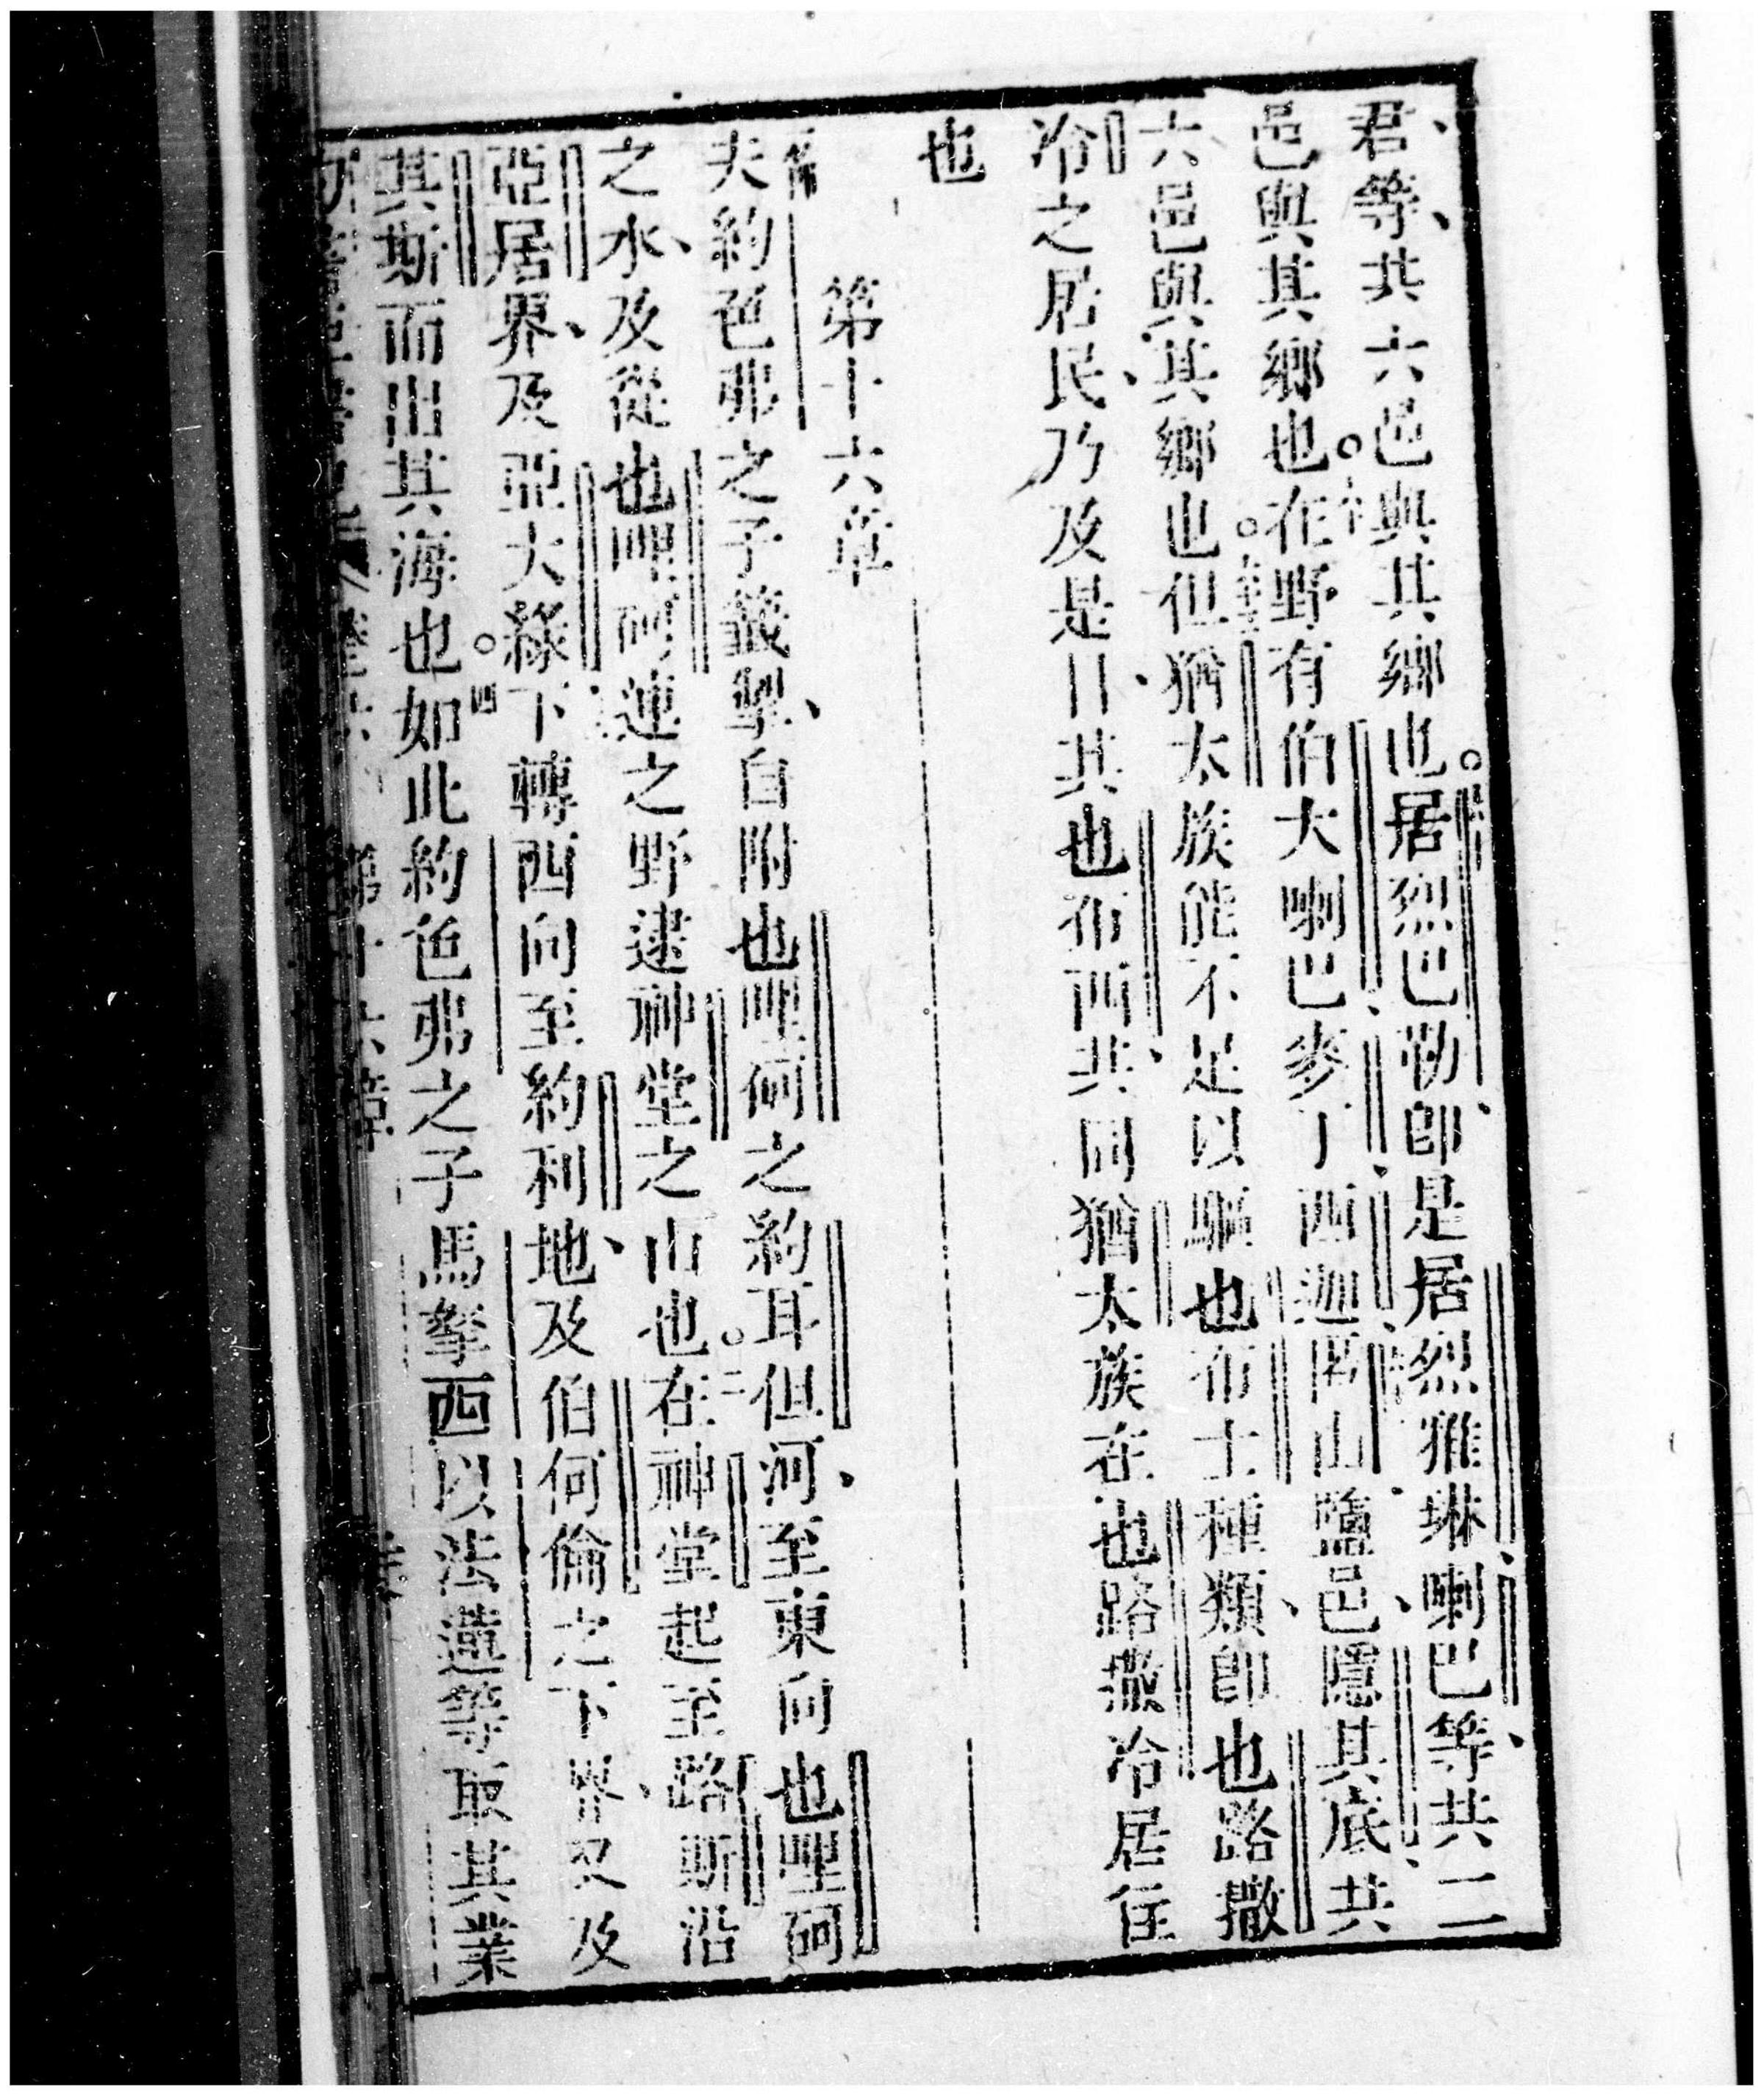 君等共六邑與其鄉也。居烈巴勒卽是居烈雅琳喇巴等共二
邑與其鄉也。在野有伯大喇巴麥丁西迦居山鹽邑隱其底共
六邑與其鄉也。但猶太族能不足以驅也布士種類卽也路撒
冷之居民乃及是日其也布西共同猶太族在也路撒冷居住
也
第十六章
夫約色弗之子籤掣自附也哩硐之約耳但河至東向也哩硐
之水及從也哩硐連之野遠神堂之山也。在神堂起至路斯沿
亞居界及亞大綠下轉西向至約利地及伯何倫之下界又及
其斯而出其海也。如此約色弗之子馬拏西以法蓮等取其業